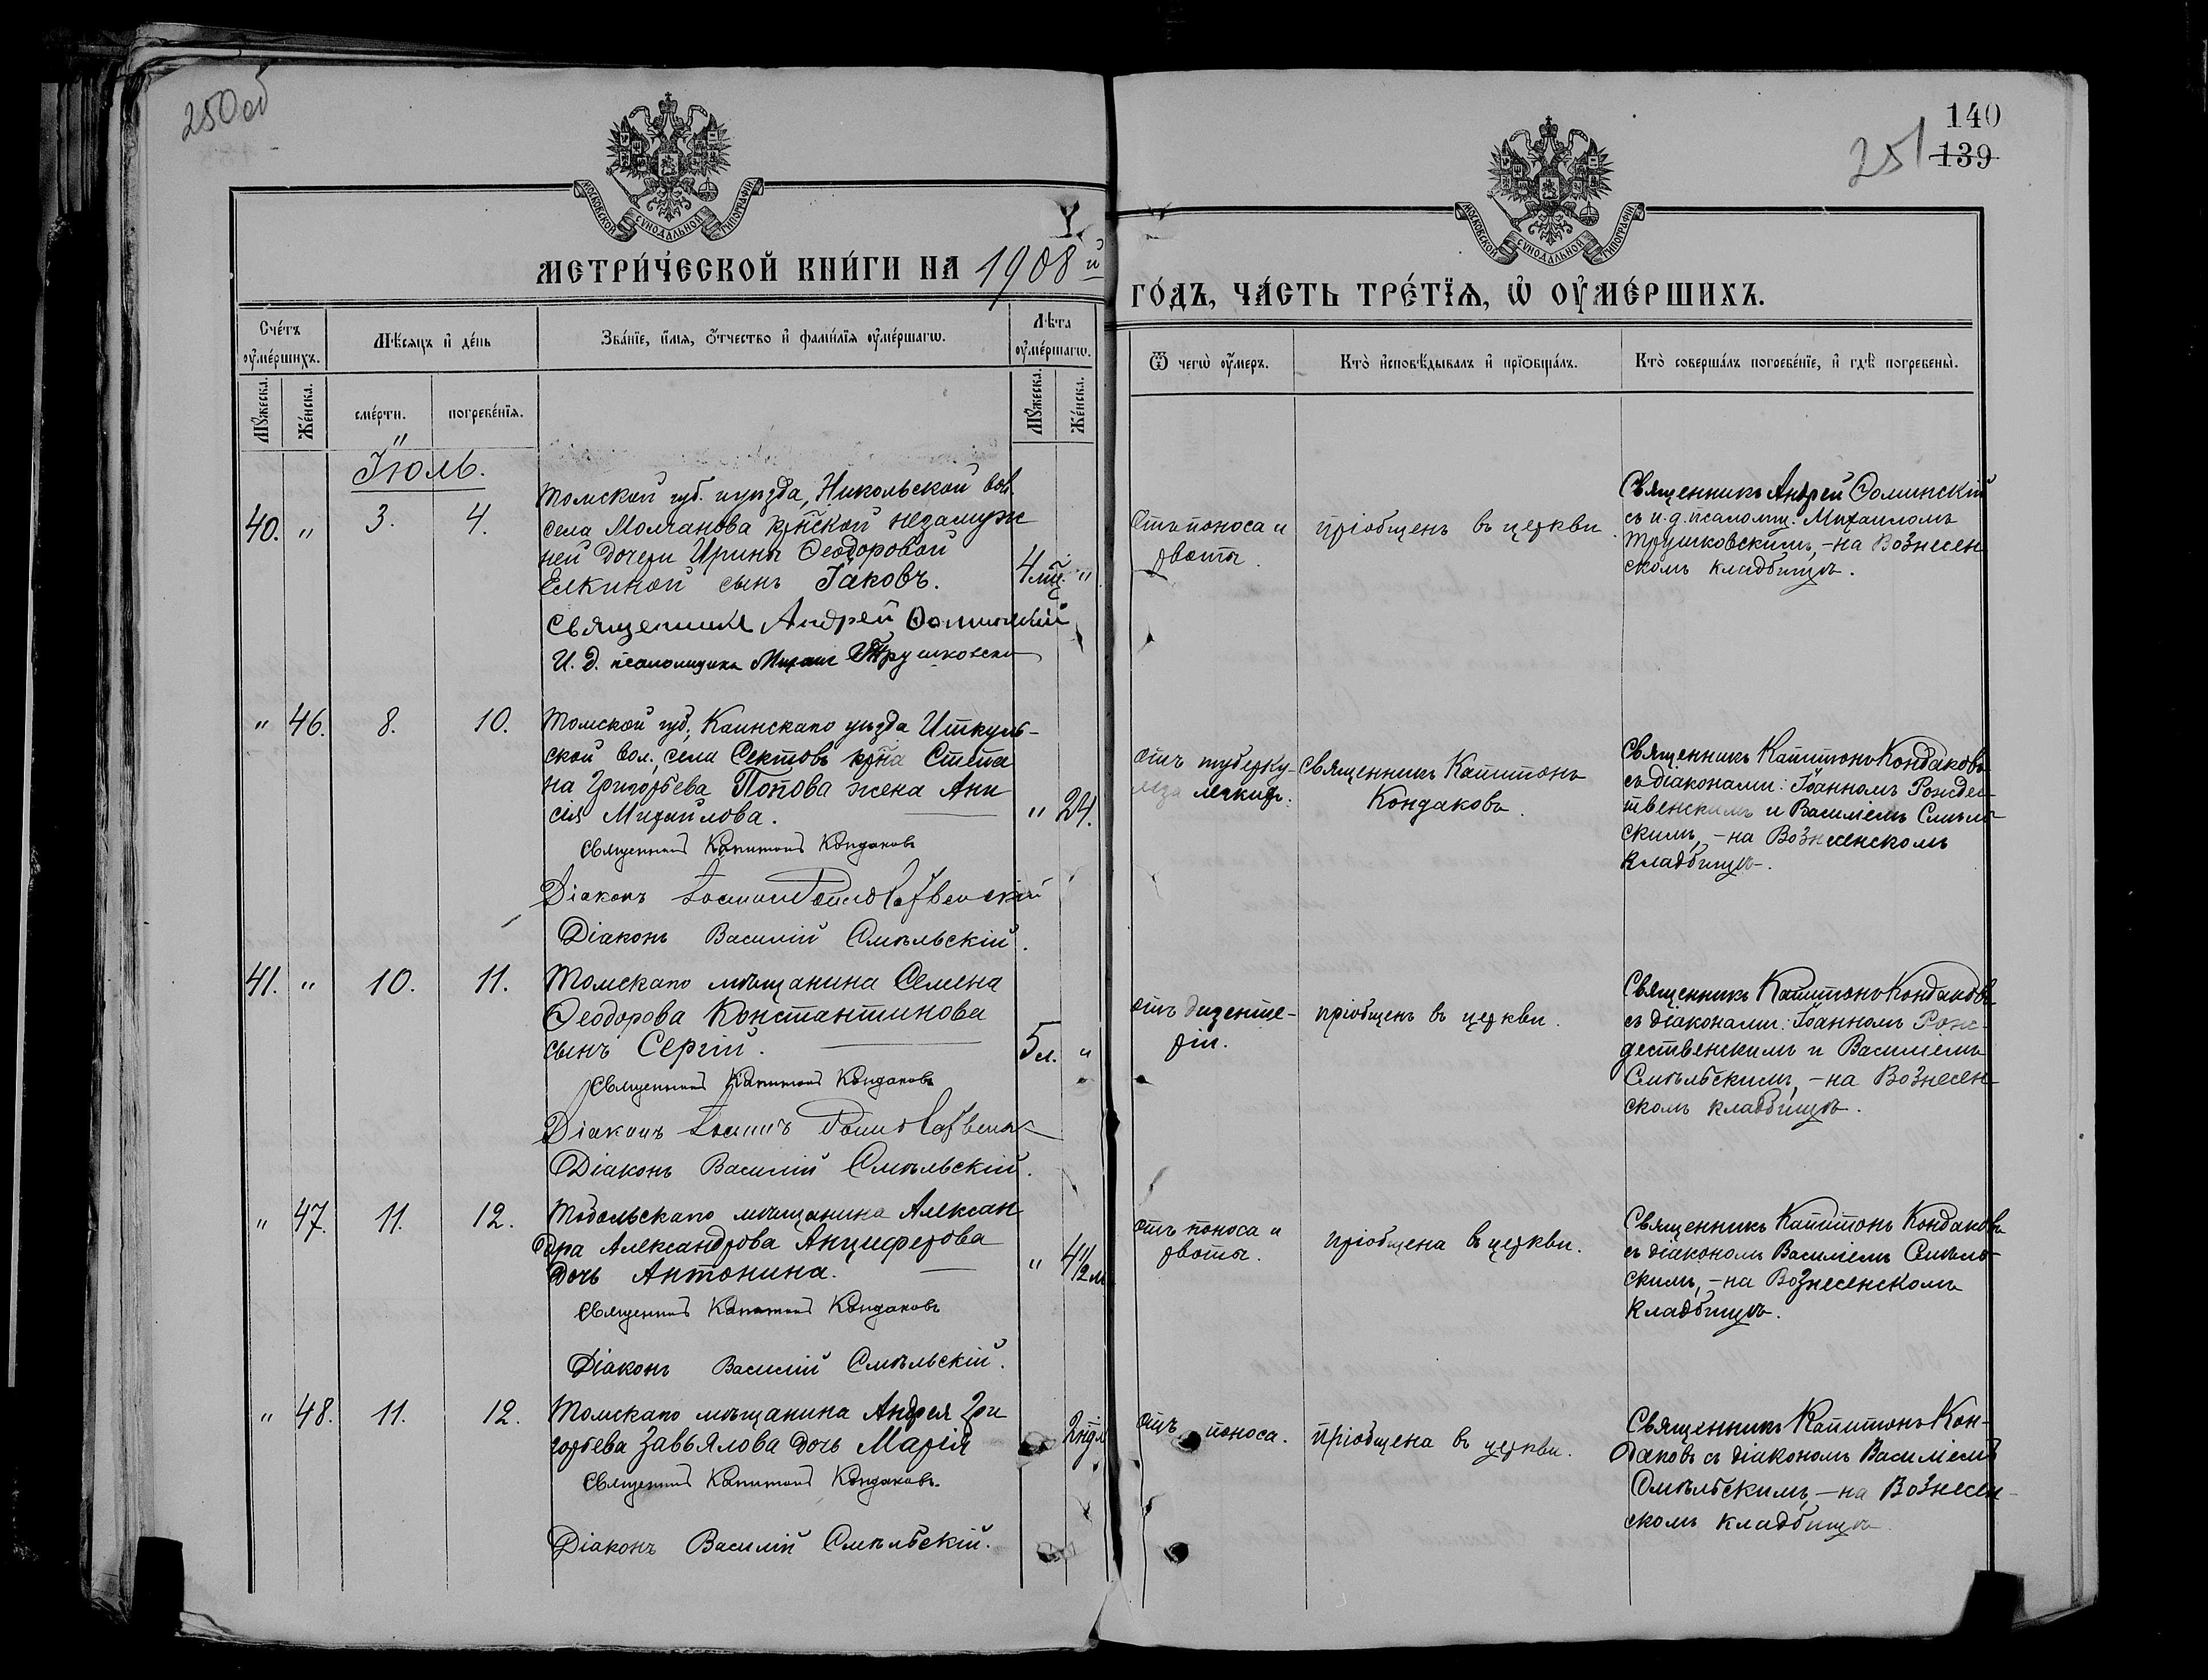 250 об
140
251 139
МОСКОВСКОЙ СУНОДАЛЬНОЙ ТИПОГРАФІИ
МОСКОВСКОЙ СУНОДАЛЬНОЙ ТИПОГРАФІИ
МЕТРИ́ЧЕСКОЙ КНИ́ГИ НА 1908й
ГО́ДЪ, ЧА́СТЬ ТРЕ́ТЇѦ, Ѡ ОУМЕ́РШИХЪ.
Сче́тъ оуме́ршихъ.
Мѣ́сяцъ и де́нь
Зва́нїе, и́мя, ѻ́тчество и фами́лїя оуме́ршагѡ.
Лѣ́та оуме́ршагѡ.
Ѿ чегѡ̀ оу́меръ.
Кто̀ и҆сповѣ́дывалъ и прїобща́лъ.
Кто̀ соверша́лъ погребе́нїе, и гдѣ̀ погребены̀.
Му́жеска.
Же́нска.
сме́рти.
погребе́нїя.
Му́жеска.
Же́нска.
Іюль.
40. " 3. 4.
Томской губ. и уѣзда, Никольской вол.
села Молчанова кр̃нской незамуж
ней дочери Ирины Ѳеодоровой
Елкиной сынъ Іаковъ.
4 мц. "
Священникъ Андрей Ѳоминскій
И. Д. псаломщика Михаил Трушковскій
Отъ поноса и
рвоты.
Пріобщенъ въ церкви.
Священникъ Андрей Ѳоминскій
съ и. д. псаломщ. Михаиломъ
Трушковскимъ, - на Вознесен
скомъ кладбищѣ.
" 46. 8. 10.
Томской губ., Каинскаго уѣзда Иткуль-
ской вол., села Сектовъ кр̃на Степа
на Григорьева Попова жена Ани
сія Михайлова.
" 24.
Священникъ Капитонъ Кондаковъ
Діаконъ Іоаннъ Рождественскій
Діаконъ Василій Смѣльскій.
отъ туберку-
леза легкихъ.
Священникъ Капитонъ
Кондаковъ.
Священникъ Капитонъ Кондаковъ
съ діаконами: Іоанномъ Рождес-
твенскимъ и Василіемъ Смѣль-
скимъ, - на Вознесенскомъ
кладбищѣ.
41. " 10. 11.
Томскаго мѣщанина Семена
Ѳеодорова Константинова
сынъ Сергій.
5 л. "
Священникъ Капитонъ Кондаковъ
Діаконъ Іоаннъ Рождественск
Діаконъ Василій Смѣльскій.
отъ дизенте-
ріи.
пріобщенъ въ церкви.
Священникъ Капитонъ Кондаковъ
съ діаконами: Іоанномъ Рож-
дественскимъ и Василіемъ
Смѣльскимъ, - на Вознесен-
скомъ кладбищѣ.
" 47. 11. 12.
Тобольскаго мѣщанина Алексан
дра Александрова Анциферова
дочь Антонина.
" 4 1/2 м
Священникъ Капитонъ Кондаковъ
Діаконъ Василій Смѣльскій.
отъ поноса и
рвоты.
пріобщена въ церкви.
Священникъ Капитонъ Кондаковъ
съ діакономъ Василіемъ Смѣль-
скимъ, - на Вознесенскомъ
кладбищѣ.
" 48. 11. 12.
Томскаго мѣщанина Андрея Гри
горьева Завьялова дочь Марія
2 нд.
Священникъ Капитонъ Кондаковъ.
Діаконъ Василій Смѣльскій.
отъ поноса.
пріобщена въ церкви.
Священникъ Капитонъ Кон-
даковъ съ діакономъ Василіемъ
Смѣльскимъ, - на Вознесен-
скомъ кладбищѣ